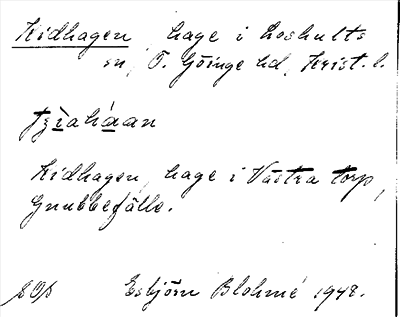 Kidhagen, hage i Loshults
sn, Ö. Göinge hd, Krist. l.
tzìaháan
Kidhagen, hage i Västra torp,
Gnubbefälle.
Esbjörn Blohmé 1948.